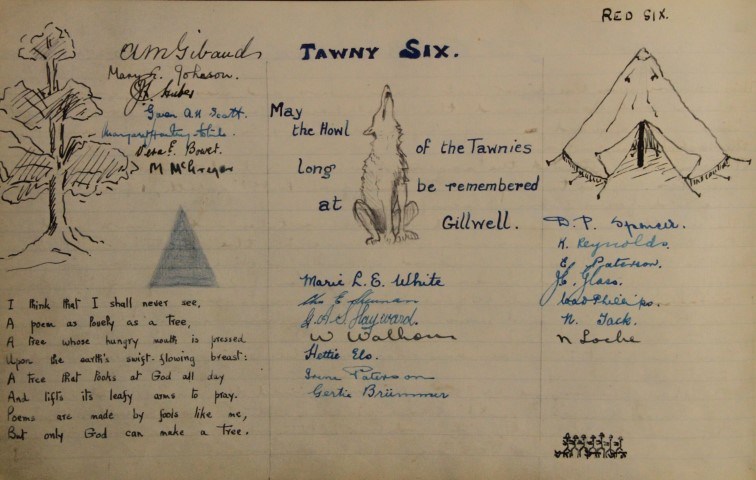 RED SIX.
TAWNY SIX.
AMGibaud
Mary G. Johnson.
Gwen A.H. Scott.
Vera E. Bowet.
M McGregor
May
the Howl
long
at
of the Tawnies
be remembered
Gillwell.
I think that I shall never see,
A poem as lovely as a tree,
A tree whose hungry mouth is pressed
Upon the earth's swift-flowing breast:
A tree that looks at God all day
And lifts its leafy arms to pray.
Poems are made by fools like me,
But only God can make a tree.
Marie L. E. White
G.A.S Hayward.
W Walhouse
Hettie Els.
Irene Paterson
Gertie Brümmer
D. P. Spencer.
K. Reynolds.
E. Paterson.
J.E. Glass.
Phillips.
N. Jack.
N Locke